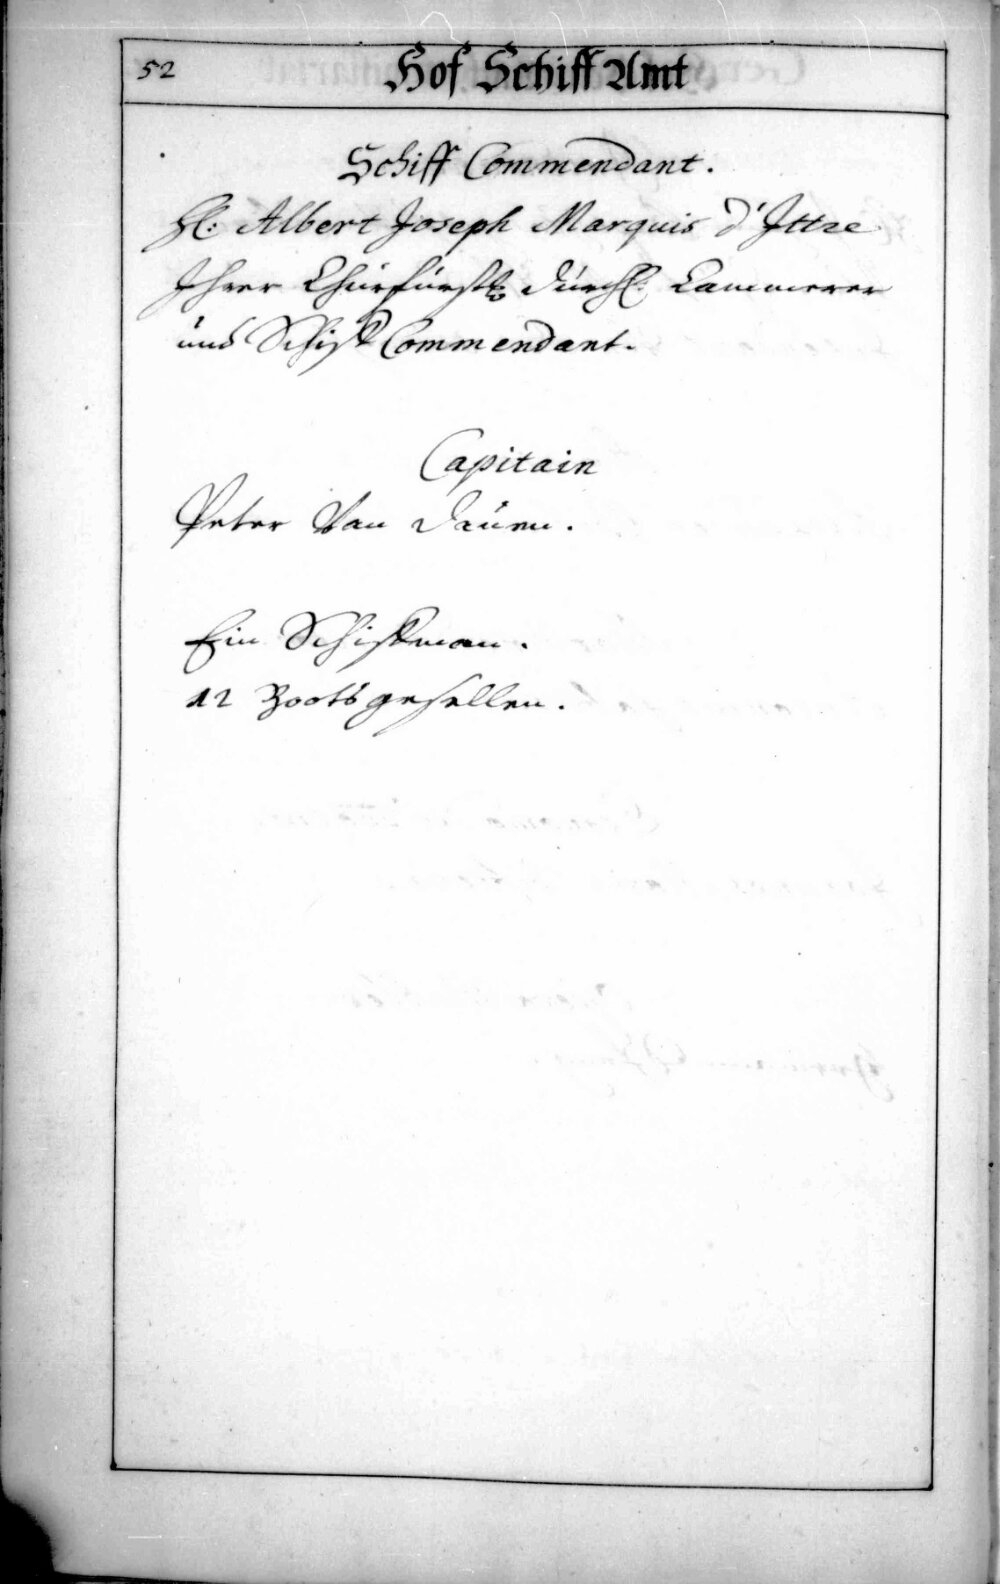 52
Hof Schiff Amt
Schiff Commendant.
H: Albert Joseph Marquis d'Ittre
Ihrer Churfürstl. Dürchl: Cammerer
und Schiff Commendant.
Capitain
Peter Van Dauen.
Ein Schiffman.
12 Bootsgesellen.